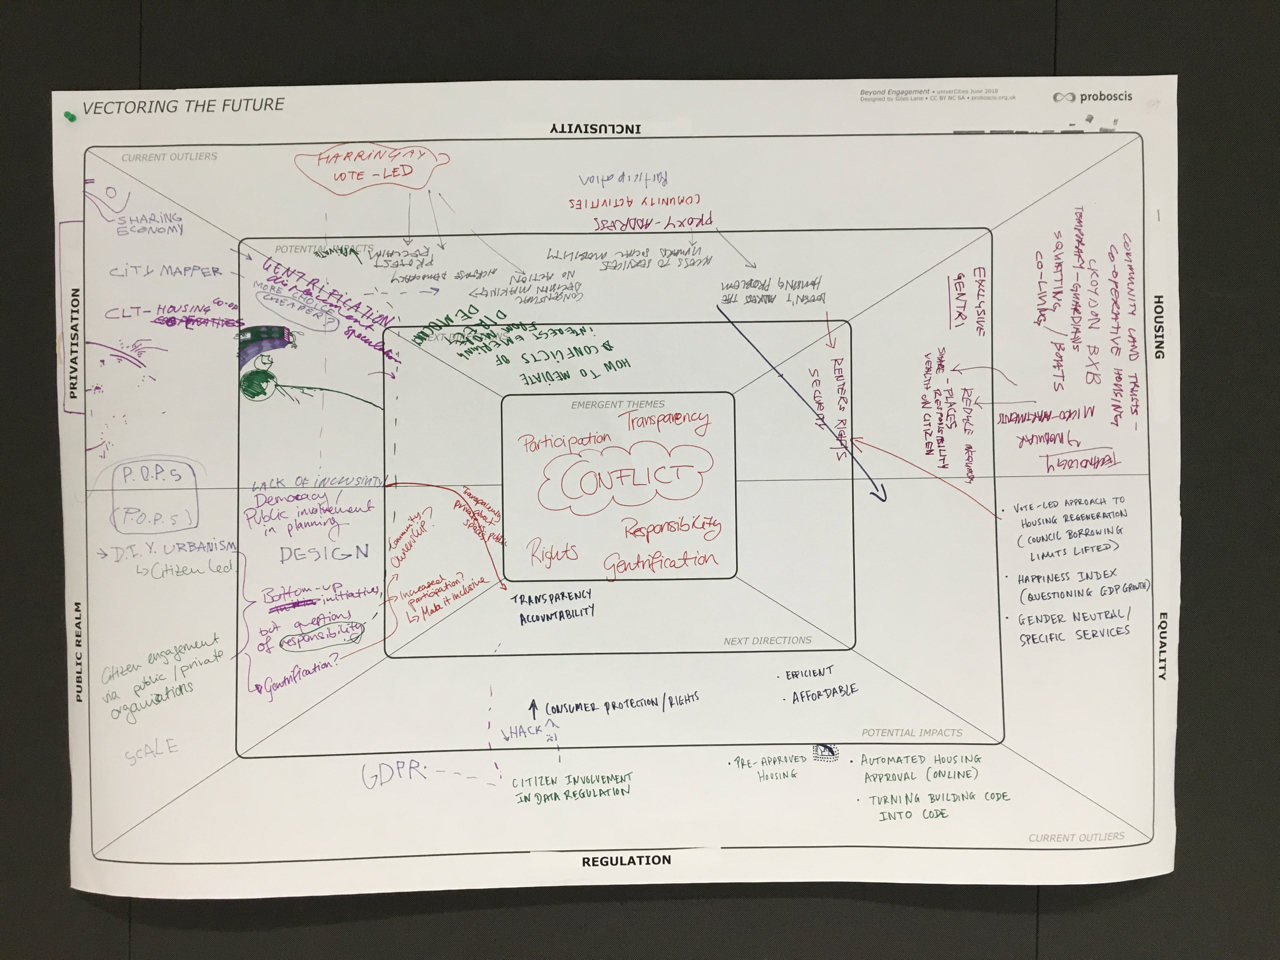 VECTORING THE FUTURE
Beyond Engagement • univerCities June 2018
Designed by Giles Lane • CC BY NC SA • proboscis.org.uk
proboscis
INCLUSIVITY
CURRENT OUTLIERS
HARRINGAY
VOTE-LED
Participation
COMMUNITY ACTIVITIES
PROXY-ADDRESS
SHARING
ECONOMY
CITY MAPPER
CLT-HOUSING
CO-OP
PRIVATISATION
POTENTIAL IMPACTS
GENTRIFICATION
displacement
speculation
MORE CHOICE
CHEAPER?
PROTEST
INCREASE DEMOCRACY
NO ACTION
DECISION MAKING
ACCESS TO SERVICES
DOESN'T ADDRESS THE
HOUSING PROBLEM
HOW TO MEDIATE
CONFLICTS OF
INTEREST EMERGING
FROM MORE
DIRECT
DEMOCRACY
EXCLUSIVE
GENTRI
RENTERS RIGHTS
SECURITY
REDUCE
SHARE - PLACES
RESPONSIBILITY
WEALTH ON CITIZEN
COMMUNITY LAND TRUSTS -
CO-OPERATIVE HOUSING
CROYDON BXB
TEMPORARY - GUARDIANS
SQUATTING / BOATS
CO-LIVING
MICRO-APARTMENTS
MODULAR
TECHNOLOGY
HOUSING
EMERGENT THEMES
Transparency
Participation
CONFLICT
Responsibility
Rights
Gentrification
P.O.P.S
(P.O.P.S)
D.I.Y. URBANISM
Citizen Led
Citizen engagement
via public/private
organisations
SCALE
PUBLIC REALM
LACK OF INCLUSIVITY
Democracy/
Public involvement
in planning
DESIGN
Bottom-up
initiatives,
but questions
of responsibility
Gentrification?
Community
ownership?
Increased
participation?
Make it inclusive
Transparency
about
private/public
spaces
TRANSPARENCY
ACCOUNTABILITY
NEXT DIRECTIONS
• EFFICIENT
• AFFORDABLE
CONSUMER PROTECTION/RIGHTS
HACK
POTENTIAL IMPACTS
GDPR
CITIZEN INVOLVEMENT
IN DATA REGULATION
• PRE-APPROVED
HOUSING
• AUTOMATED HOUSING
APPROVAL (ONLINE)
• TURNING BUILDING CODE
INTO CODE
• VOTE-LED APPROACH TO
HOUSING REGENERATION
(COUNCIL BORROWING
LIMITS LIFTED)
• HAPPINESS INDEX
(QUESTIONING GDP GROWTH)
• GENDER NEUTRAL/
SPECIFIC SERVICES
EQUALITY
CURRENT OUTLIERS
REGULATION